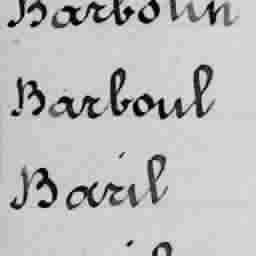 Barbolin
Barboul
Baril